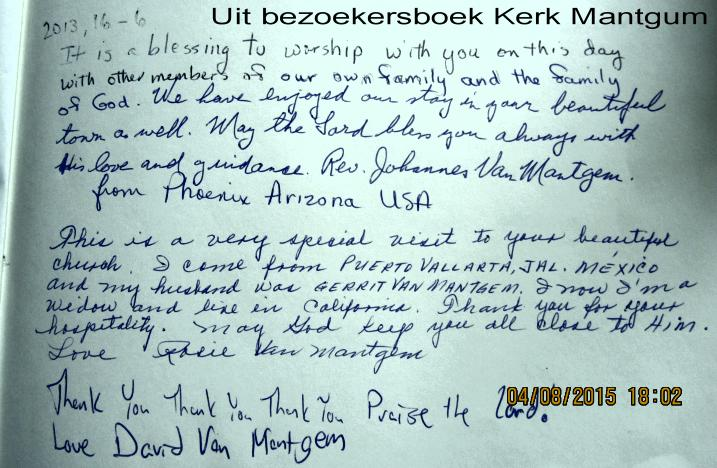 Uit bezoekersboek Kerk Mantgum
2013, 16-6
It is a blessing to worship with you on this day
with other members of our own family and the family
of God. We have enjoyed our stay in your beautiful
town as well. May the Lord bless you always with
His love and guidance. Rev. Johannes Van Mantgem.
from Phoenix Arizona USA
This is a very special visit to your beautiful
church. I come from PUERTO VALLARTA, JAL. MÉXICO
and my husband was GERRIT VAN MANTGEM. I now I'm a
widow and live in California. Thank you for your
hospitality. May God keep you all close to Him.
Love Rosie Van Mantgem
Thank You Thank You Thank You Praise the Lord!
04/08/2015 18:02
Love David Van Mantgem